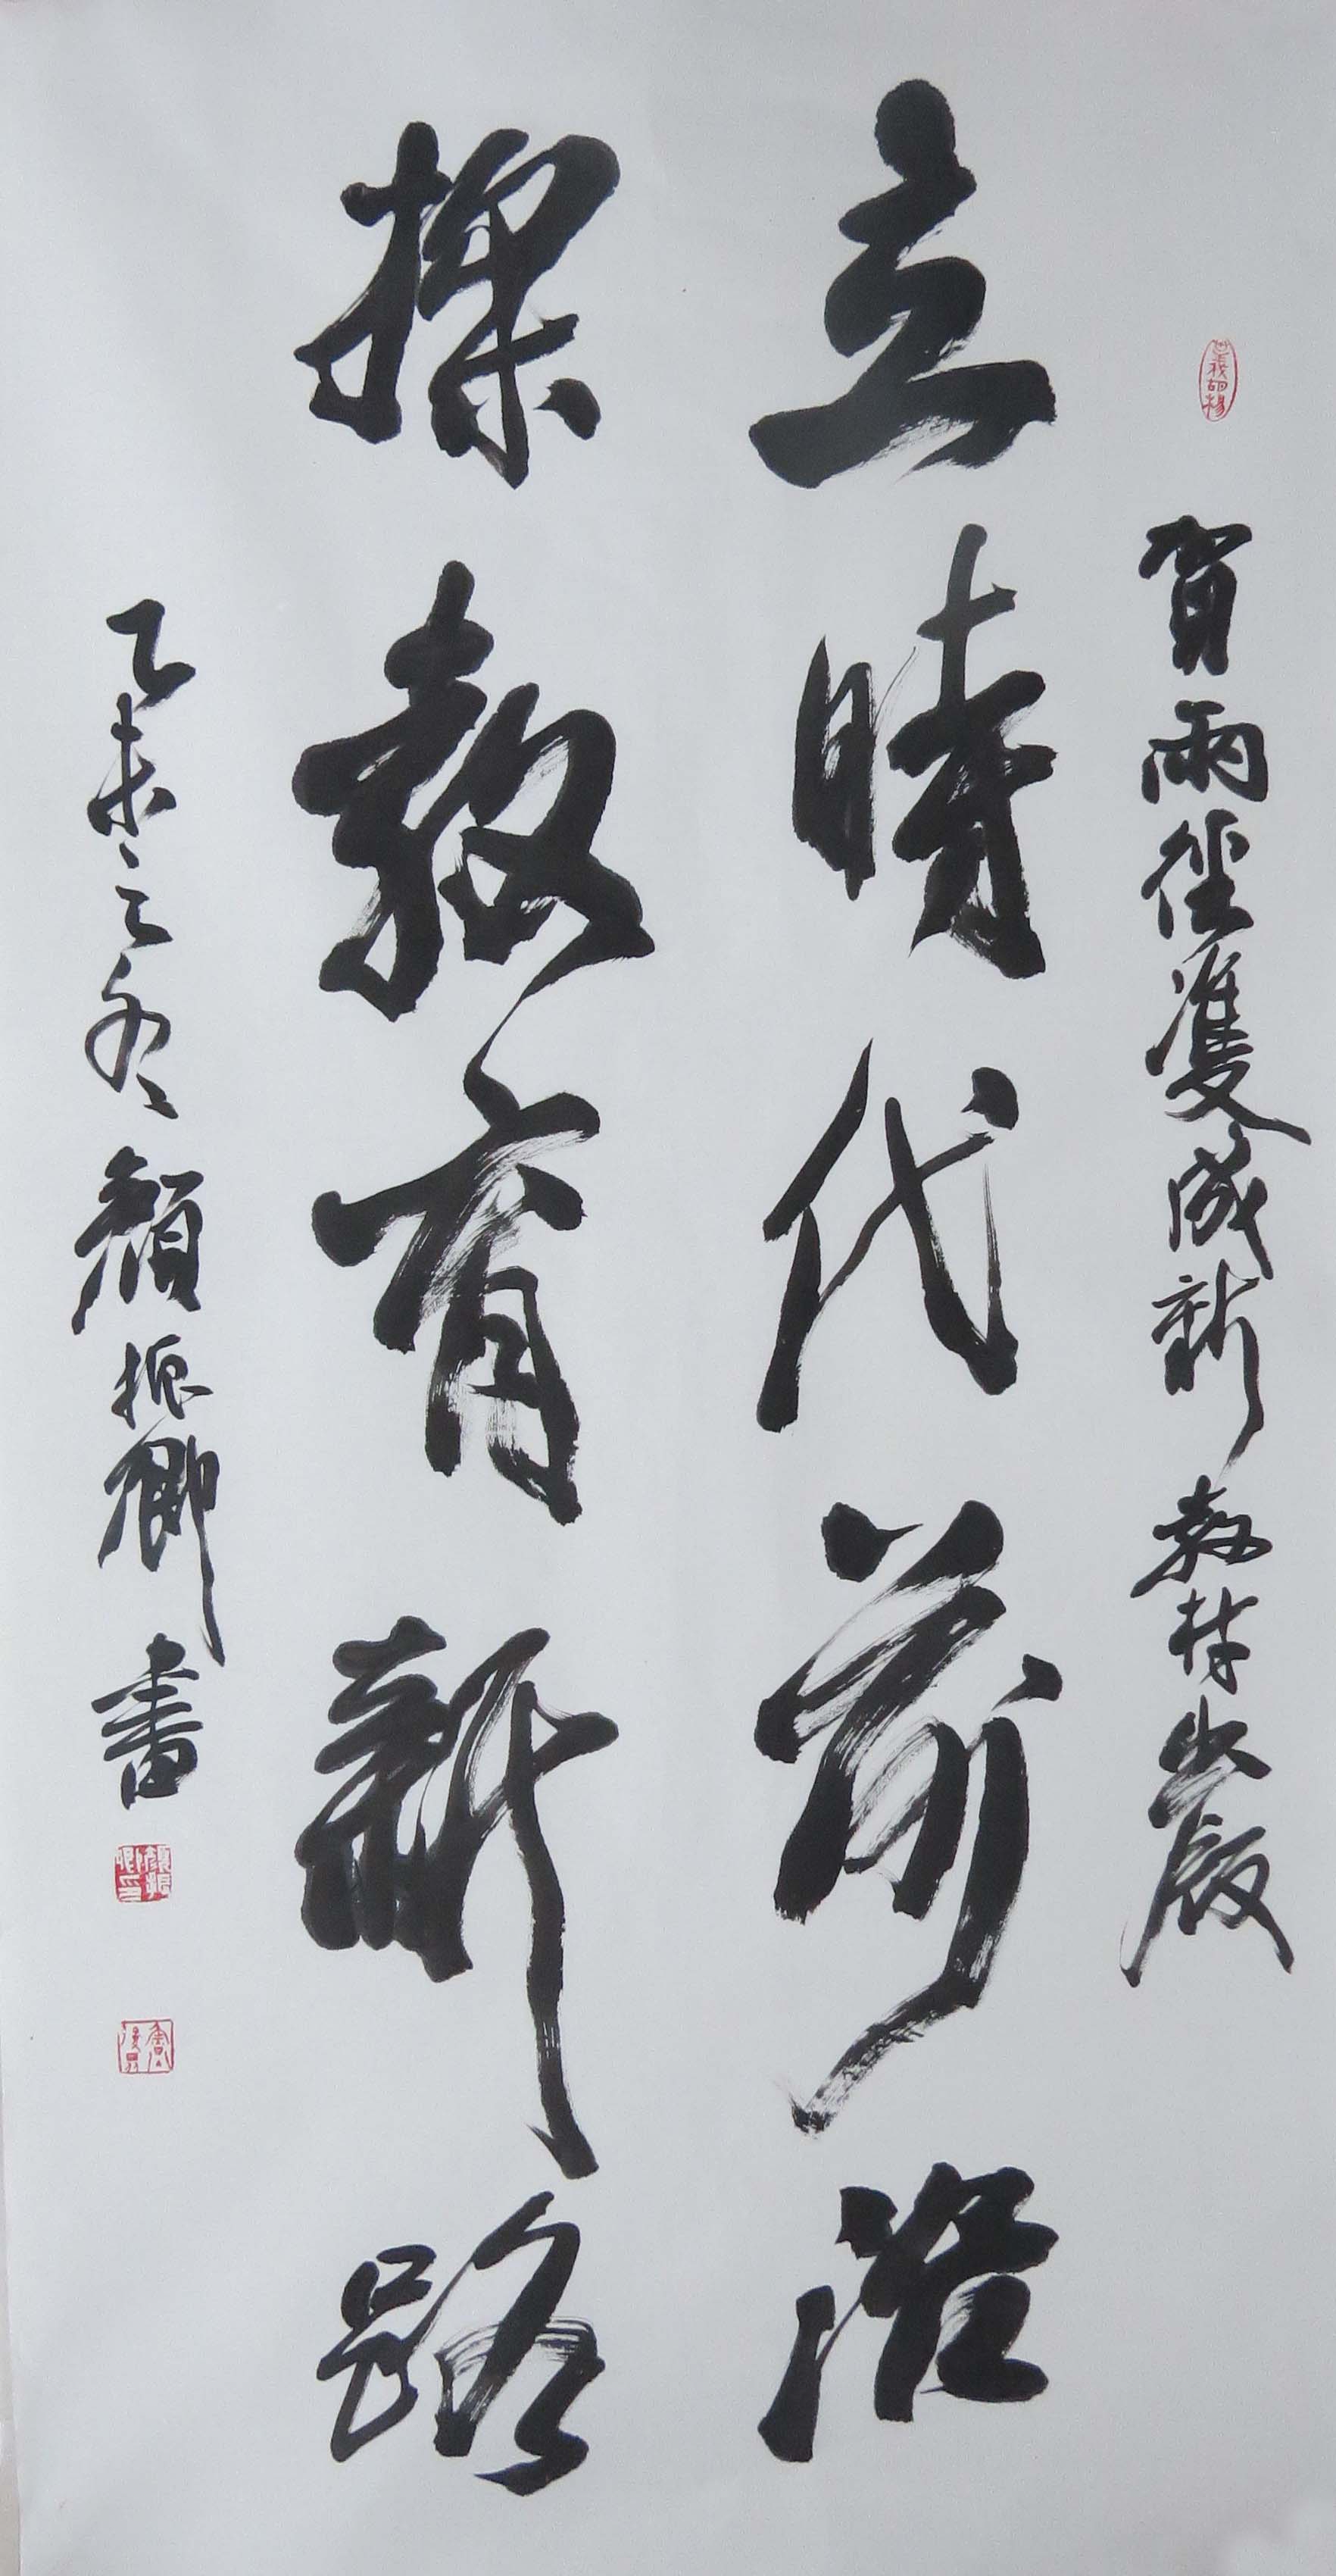 賀兩徑雙成新教材出版
立時代前沿
探教育新路
乙未之冬顏振卿書